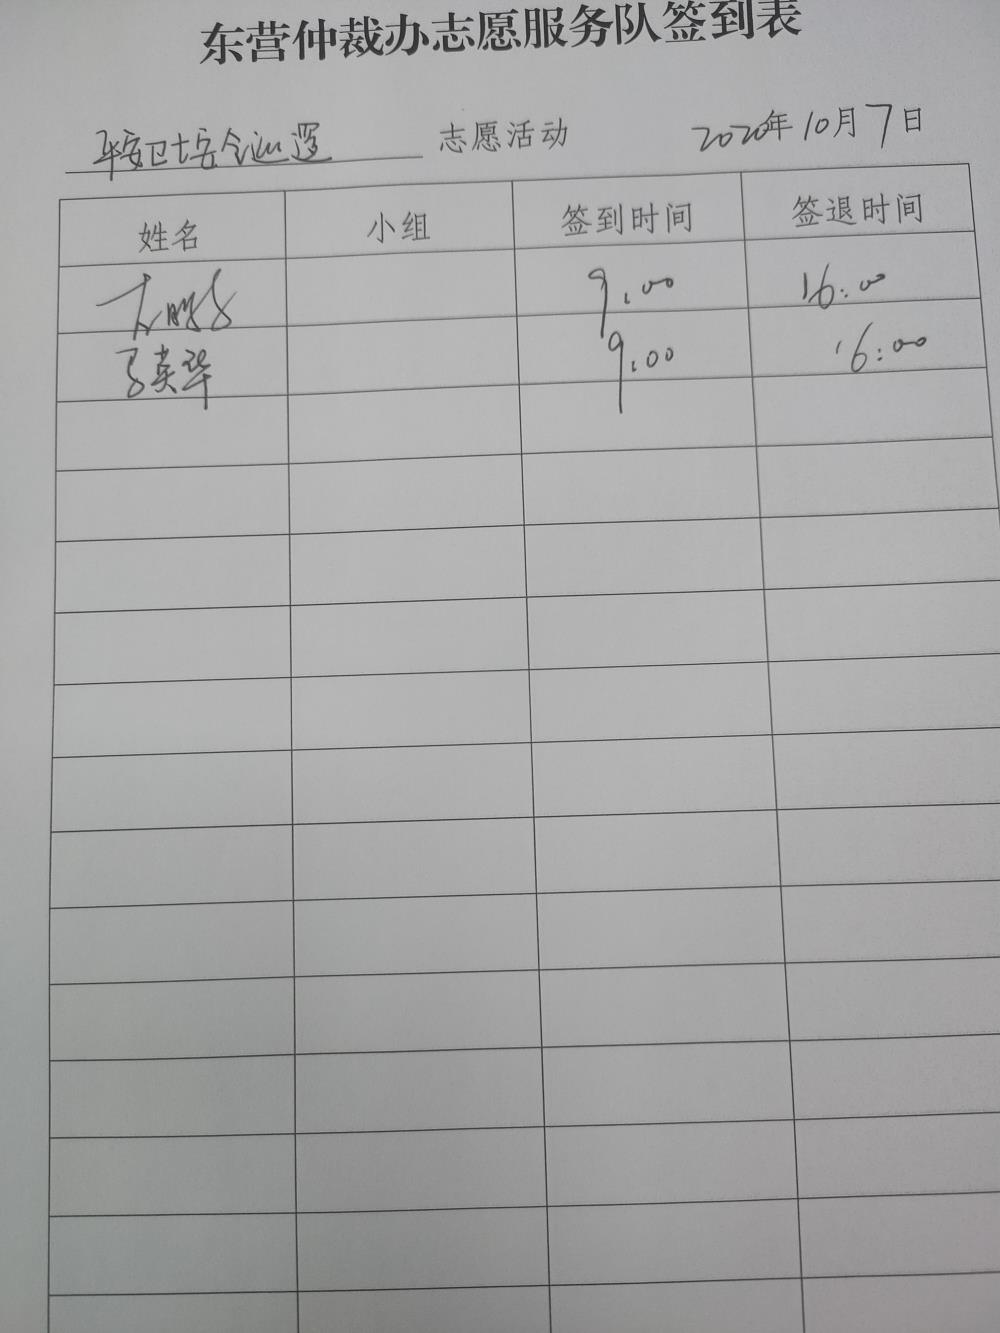 东营仲裁办志愿服务队签到表
平安卫士安全巡逻 志愿活动 2020年10月7日
姓名 小组 签到时间 签退时间
9:00 16:00
马英华 9:00 16:00